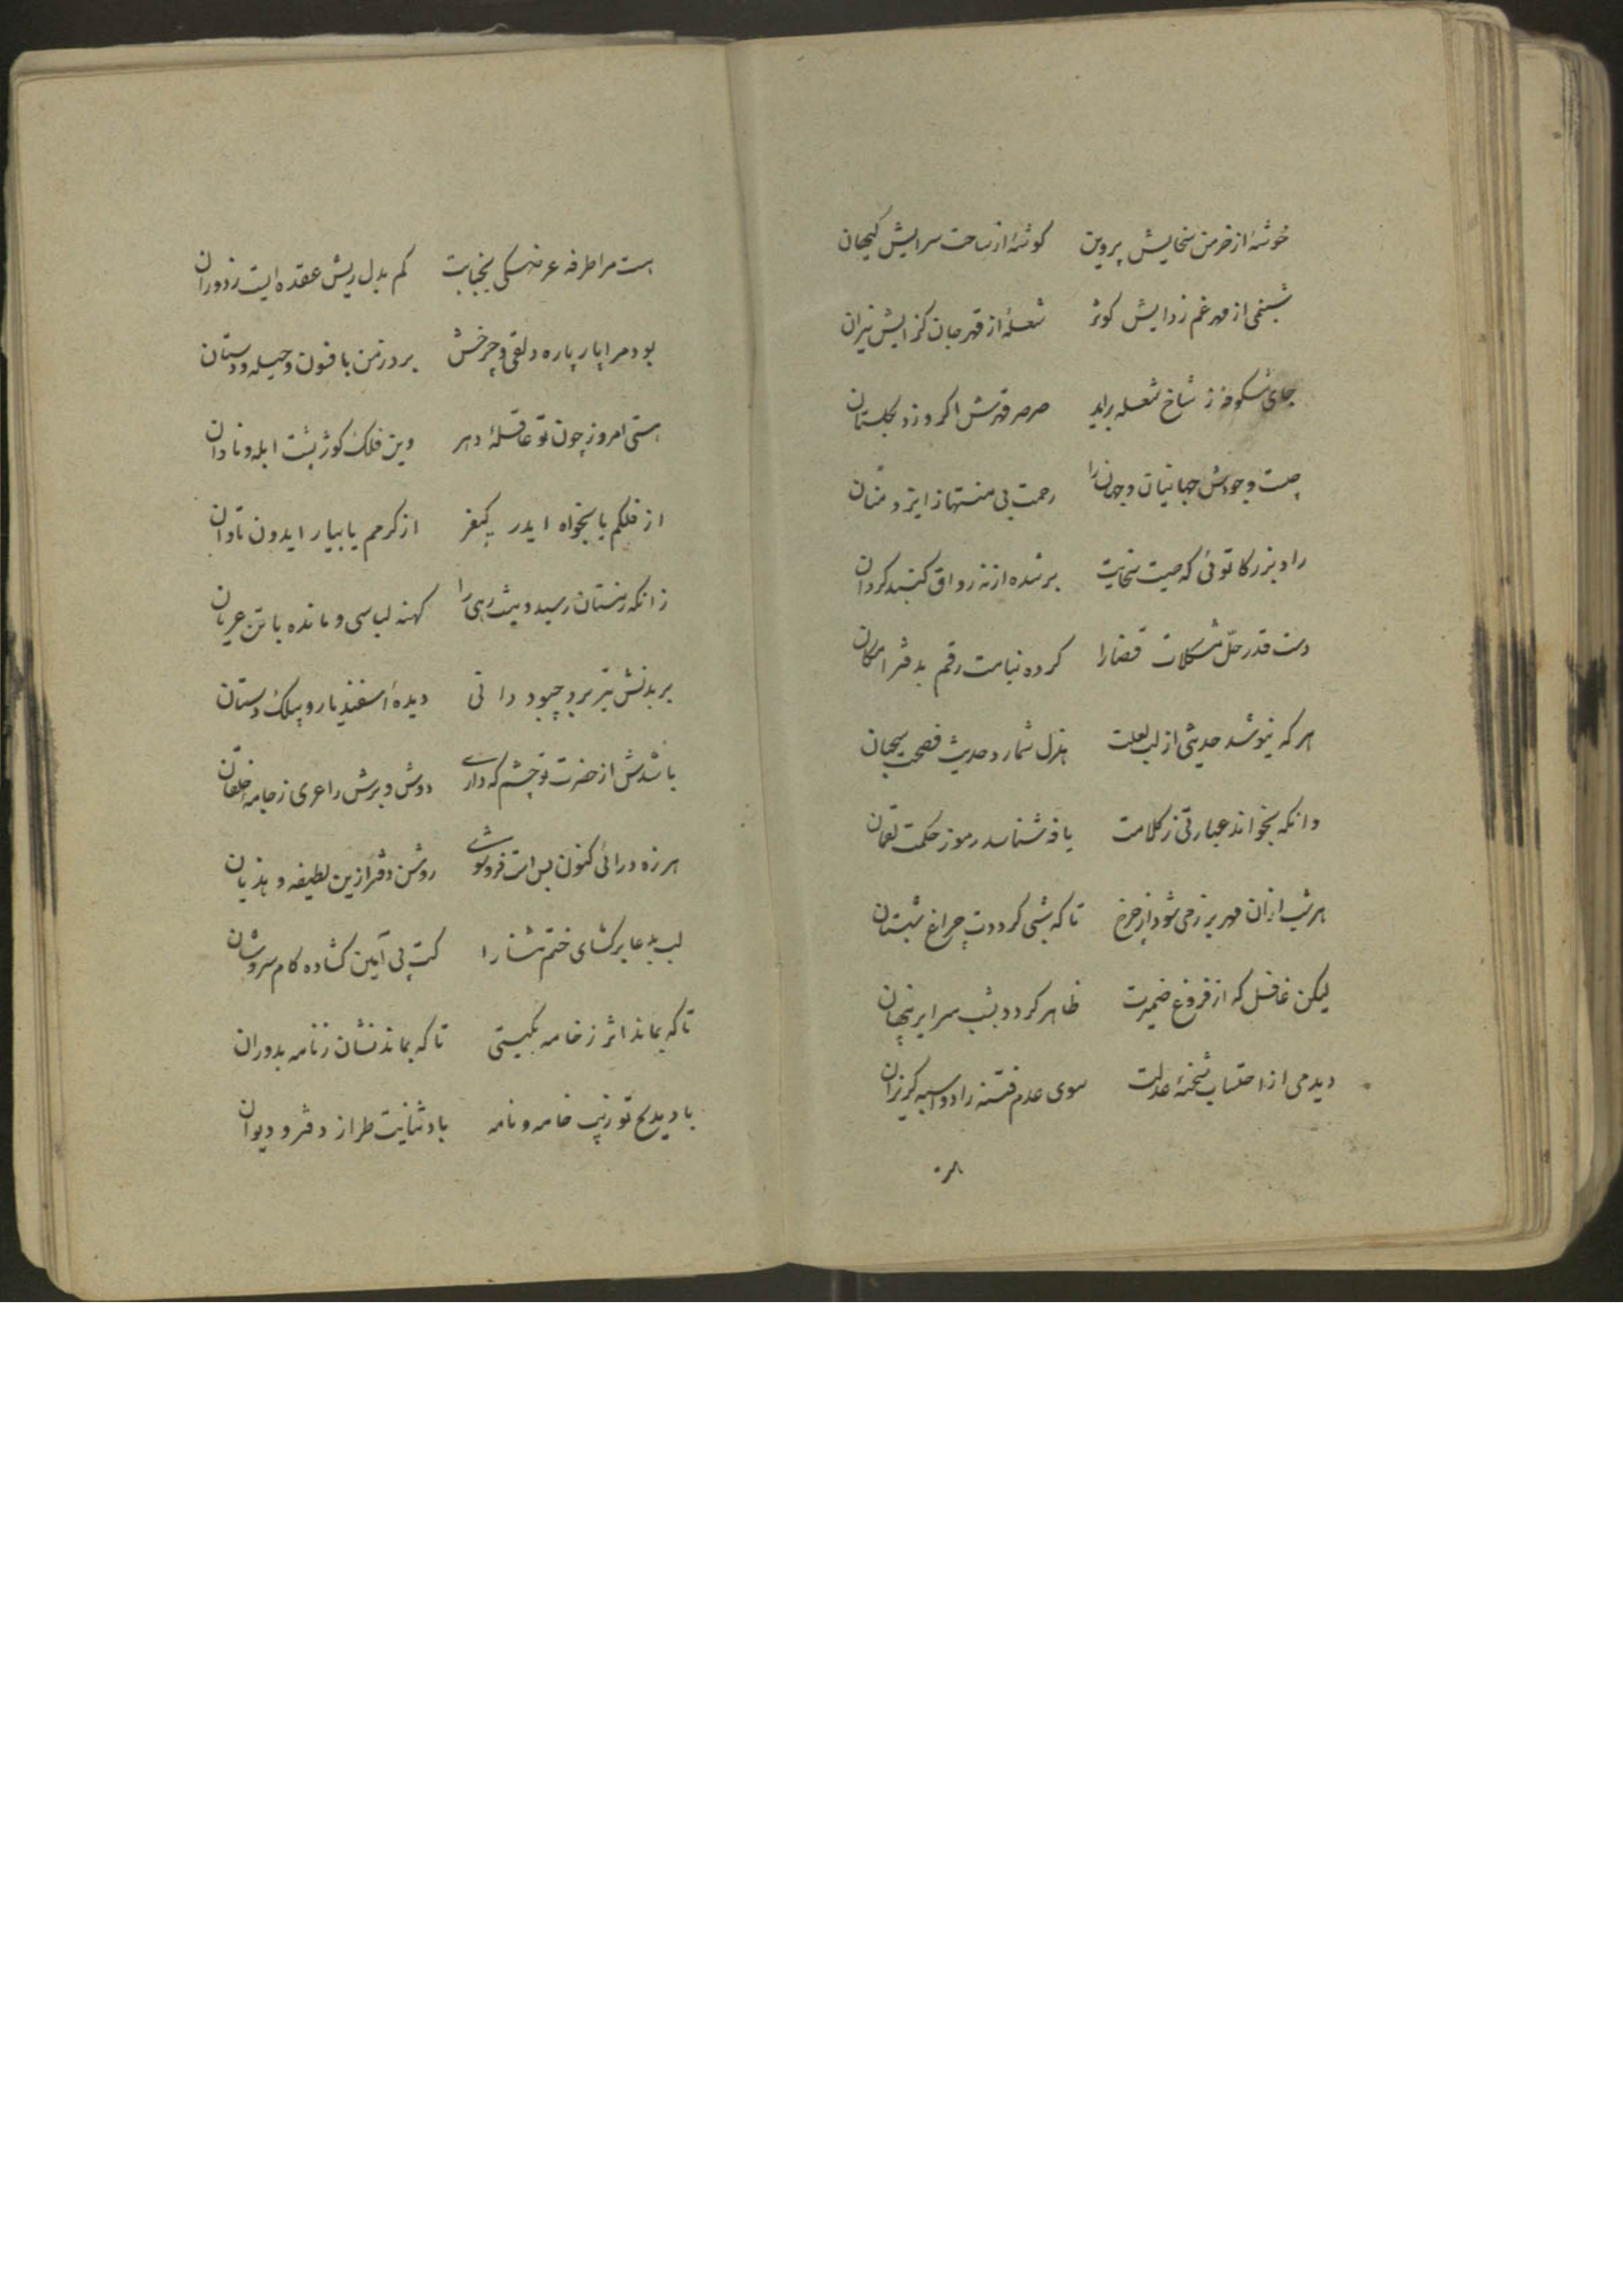 خوشهٔ از خرمن سخایش پروین گوشهٔ از ساحت سرایش کیهان
شبنمی از مهر غم زدایش کوثر شعلهٔ از قهر جان گزایش نیران
جای شکوفه ز شاخ شعله براید صرصر قهرش اگر وزد بگلستان
چیست وجودش جهانیان و جهان را رحمت بی منتها ز ایزد منان
راد بزرگا توئی که صیت سخایت برشده از نه رواق گنبد گردان
دست قدر حلّ مشکلات قضا را کرده بنامت رقم بدفتر امکان
هر که نیوشد حدیثی از لب لعلت هزل شمارد حدیث فصحت سحبان
وانکه بخواند عبارتی ز کلامت یافه شناسد رموز حکمت لقمان
هر شب ازان مهر بر زمی شود از چرخ تا که شبی گرددت چراغ شبستان
لیکن غافل که از فروغ ضمیرت ظاهر گردد بشب سرایر پنهان
دیدمی از احتساب شحنهٔ عدلت سوی عدم فتنه را دو اسبه گریزان
هست مرا طرفه عرضگی بجنابت کم بدل ریش عقده ایست ز دوران
بود مرا پار پاره دلقی و چرخش برد ز من با فنون و حیله و دستان
هستی امروز چون تو عاقلهٔ دهر وین فلک کوژپشت ابله و نادان
از فلکم یا بخواه ایدر کیفر از کرمم یا بیار ایدون تاوان
زانکه زمستان رسید و نیست رهی را کهنه لباسی و مانده با تن عریان
بر بدنش تیر برد چبود دانی دیدهٔ اسفندیار و بیلک دستان
باشدش از حضرت تو چشم که داری دوش و برش را عری ز جامهٔ خلقان
هرزه درائی کنون بس است فروشی روشن دفتر ازین لطیفه و هذیان
لب بدعا برگشای ختم ثنا را کت پی آمین گشاده کام سروشان
تا که بماند اثر ز خامه بگیتی تا که بماند نشان ز نامه بدوران
باد مدیح تو زیب خامه و نامه باد ثنایت طراز دفتر و دیوان